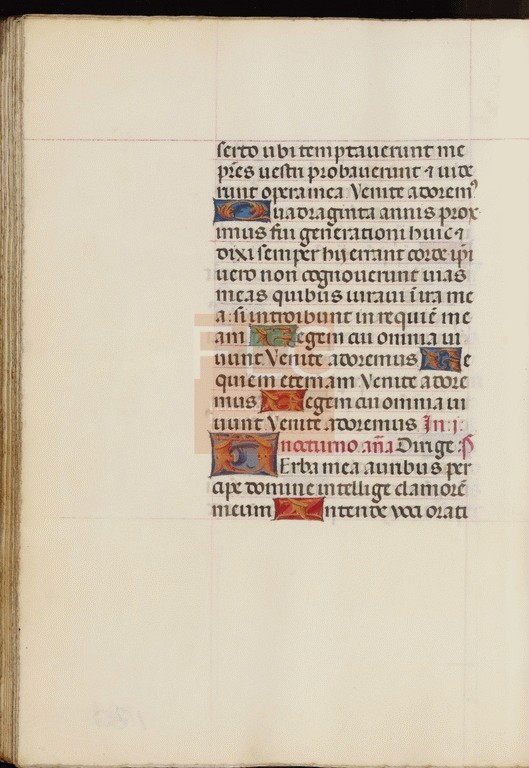 serto ubi temptauerunt me
pr̄es uestri probauerunt ⁊ uide
runt opera mea Venite adorem⁹
Quadraginta annis prox
imus fui generationi huic ⁊
dixi semper hij errant corde ip̄i
uero non cognouerunt uias
meas quibus iuraui ī ira me
a : si introibunt in requiē me
am Regem cui omnia ui
uunt Venite adoremus Re
quiem eternam Venite adore
mus Regem cui omnia ui
uunt Venite adoremus In j·
nocturno an̄a Dirige p̄s
Verba mea auribus per
cipe domine intellige clamorē
meum Intende uoci orati